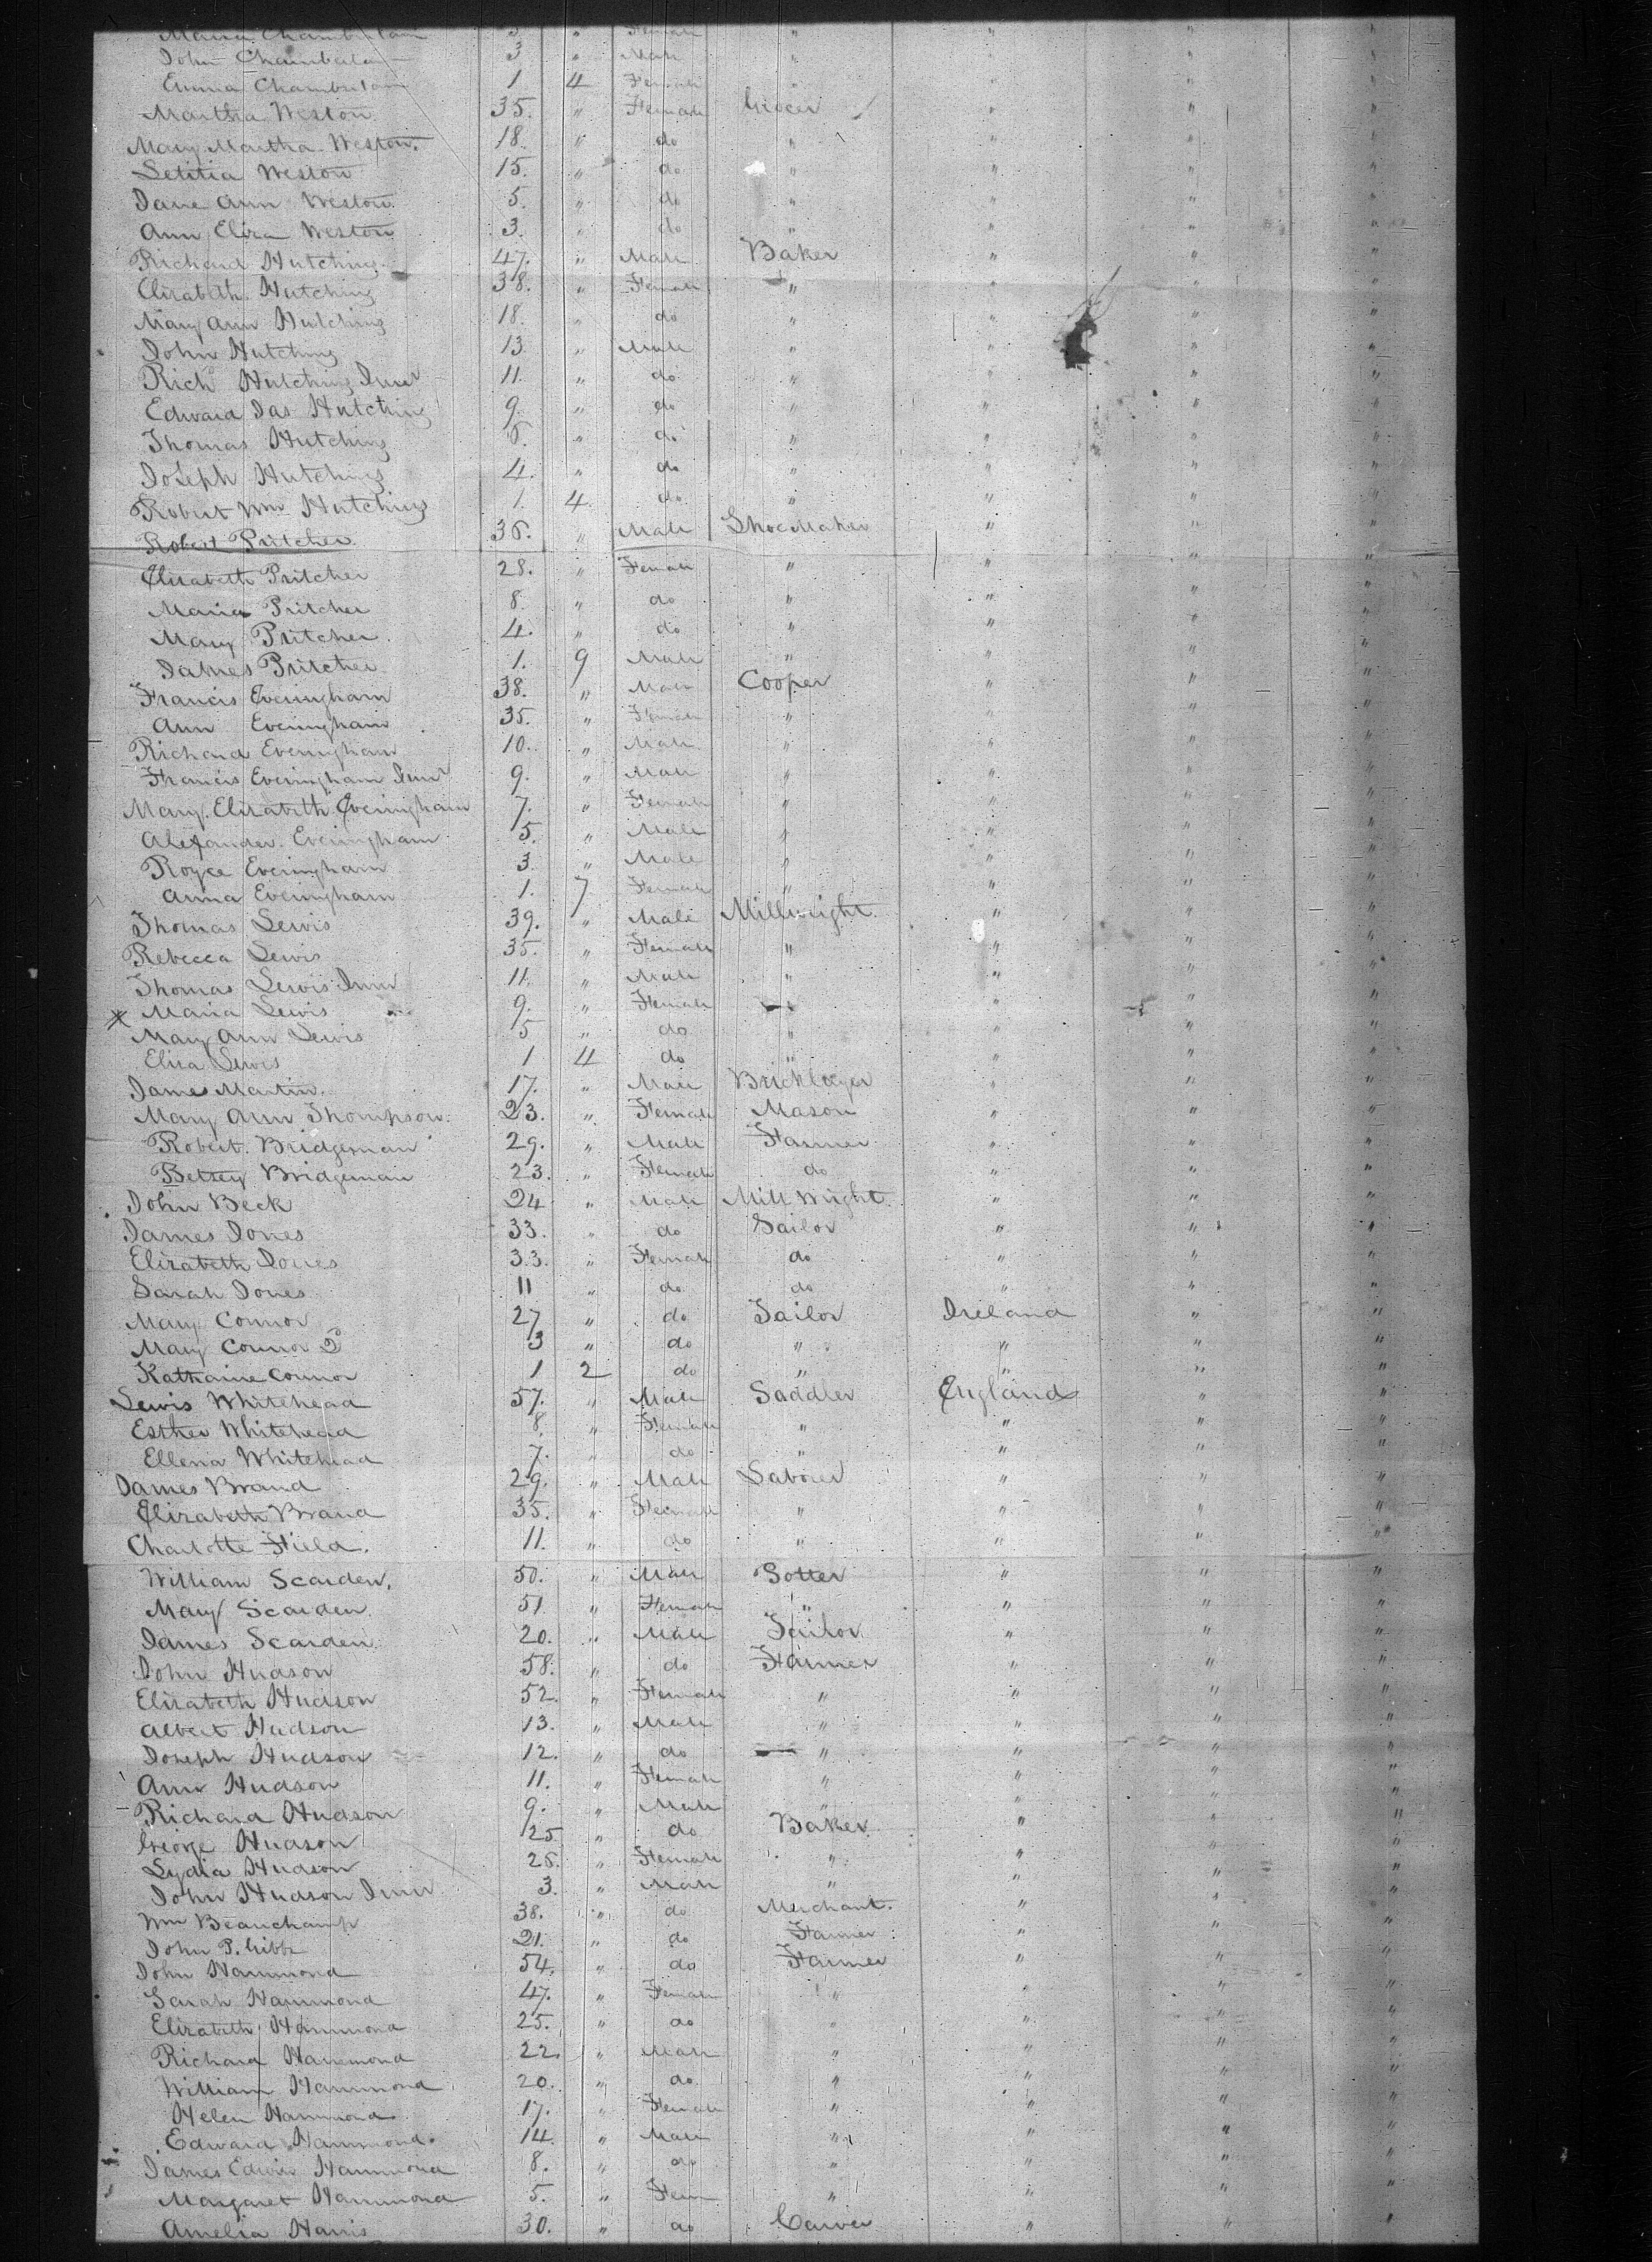 Maria Chamberlain 5 " Female " " " "
John Chamberlain 3 " Male " " " "
Emma Chamberlain 1 4 Female " " " "
Martha Weston 35. " Female Grocer " " "
Mary Martha Weston. 18. " do " " " "
Letitia Weston 15. " do " " " "
Jane Ann Weston. 5. " do " " " "
Ann Eliza Weston 3. " do " " " "
Richard Hutchings 47. " Male Baker " " "
Elizabeth Hutching 38. " Female " " " "
Mary Ann Hutching 18. " do " " " "
John Hutching 13. " Male " " " "
Richd Hutching Junr 11. " do " " " "
Edward Jas Hutching 9. " do " " " "
Thomas Hutching " do " " " "
Joseph Hutchings 4. " do " " " "
Robert Wm Hutchings 1. 4. do " " " "
Robert Pritcher 36. " Male Shoe Maker " " "
Elizabeth Pritcher 28. " Female " " " "
Maria Pritcher 8. " do " " " "
Mary Pritcher. 4. " do " " " "
James Pritcher 1. 9 Male " " " "
Francis Everingham 38. " Male Cooper " " "
Ann Everingham 35. " Female " " " "
Richard Everingham 10. " Male " " " "
Francis Everingham Junr 9. " Male " " " "
Mary Elizabeth Everingham 7. " Female " " " "
Alexander Everingham 5. " Male " " " "
Royce Everingham 3. " Male " " " "
Anna Everingham 1. 7 Female " " " "
Thomas Lewis 39. " Male Millwright " " "
Rebecca Lewis 35. " Female " " " "
Thomas Lewis Junr 11. " Male " " " "
Maria Lewis 9. " Female " " " "
Mary Ann Lewis 5 " do " " " "
Eliza Lewis 1 4 do " " " "
James Martin. 17. " Male Bricklayer " " "
Mary Ann Thompson. 23. " Female Mason " " "
Robert Bridgeman 29. " Male Farmer " " "
Betsey Bridgeman 23. " Female do " " "
John Beck 24 " Male Mill Wright " " "
James Jones 33. " do Sailor " " "
Elizabeth Jones 33. " Female do " " "
Sarah Jones 11 " do do " " "
Mary Connor 27 " do Tailor Ireland " "
Mary Connor 2d 3 " do " " " "
Katharine Connor 1 2 do " " " "
Lewis Whitehead 57. " Male Saddler England " "
Esther Whitehead 8. " Female " " " "
Ellena Whitehead 7. " do " " " "
James Brand 29. " Male Laborer " " "
Elizabeth Brand 35. " Female " " " "
Charlotte Field. 11. " do " " " "
William Scarden. 50. " Male Potter " " "
Mary Scarden. 51 " Female " " " "
James Scarden. 20. " Male Tailor " " "
John Hudson 58. " do Farmer " " "
Elizabeth Hudson 52. " Female " " " "
Albert Hudson 13. " Male " " " "
Joseph Hudson 12. " do " " " "
Ann Hudson 11. " Female " " " "
Richard Hudson 9. " Male " " " "
George Hudson 25 " do Baker " " "
Lydia Hudson 25. " Female " " " "
John Hudson Junr 3. " Male " " " "
Wm Beauchamp 38. " do Merchant. " " "
John P. Gibbs 21. " do Farmer " " "
John Hammond 54. " do Farmer " " "
Sarah Hammond 47. " Female " " " "
Elizabeth Hammond 25. " do " " " "
Richard Hammond 22. " Male " " " "
William Hammond 20. " do " " " "
Helen Hammond 17. " Female " " " "
Edward Hammond. 14. " Male " " " "
James Edwin Hammond 8. " do " " " "
Margaret Hammond 5. " Fem " " " "
Amelia Harris 30. " do Carver " " "